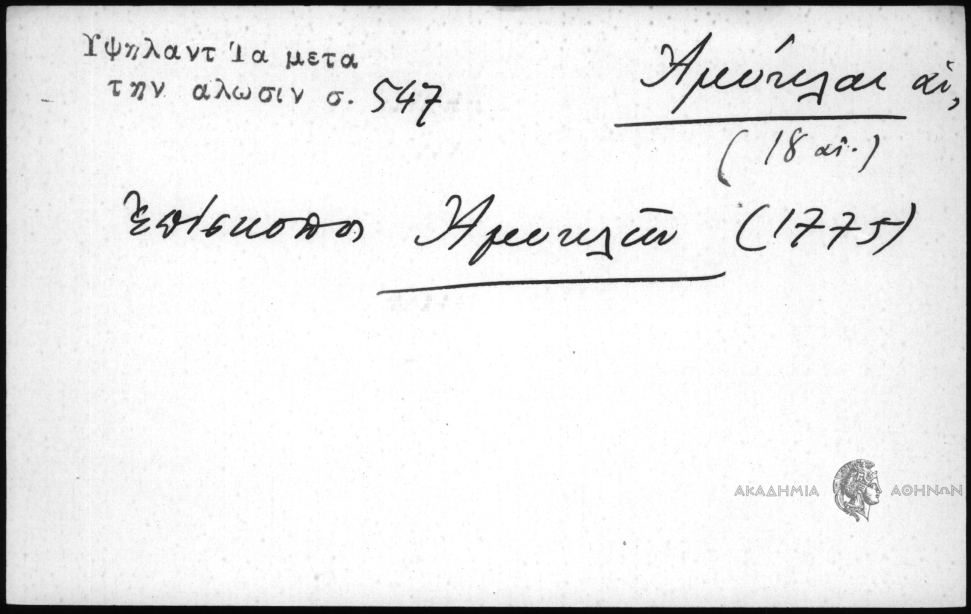 Υψηλαντ Ία μετα
την αλωσιν σ. 547
Ἀμύκλαι αἱ,
(18 αἰ.)
Ἐπίσκοπος Ἀμυκλῶν (1775)
ΑΚΑΔΗΜΙΑ ΑΘΗΝΩΝ